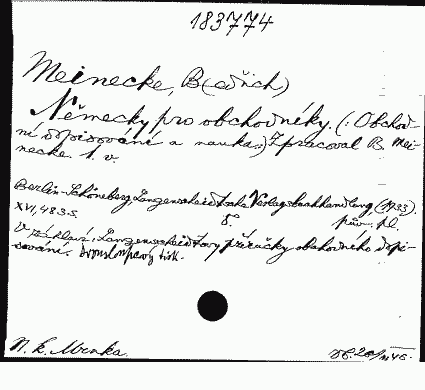 183774
Meinecke, B(edřich)
Německy pro obchodníky. (: Obchod-
ní dopisování a nauka.:) Zpracoval B. Mei-
necke. 1. v.
Berlin-Schöneberg, Langenscheidtsche Verlagsbuchhandlung, (1933).
XVI, 483 s. 8°. pův. pl.
V záhlaví: Langenscheidtovy příručky obchodního dopi-
sování. Dvousloupcový tisk.
N. k. Mrnka.